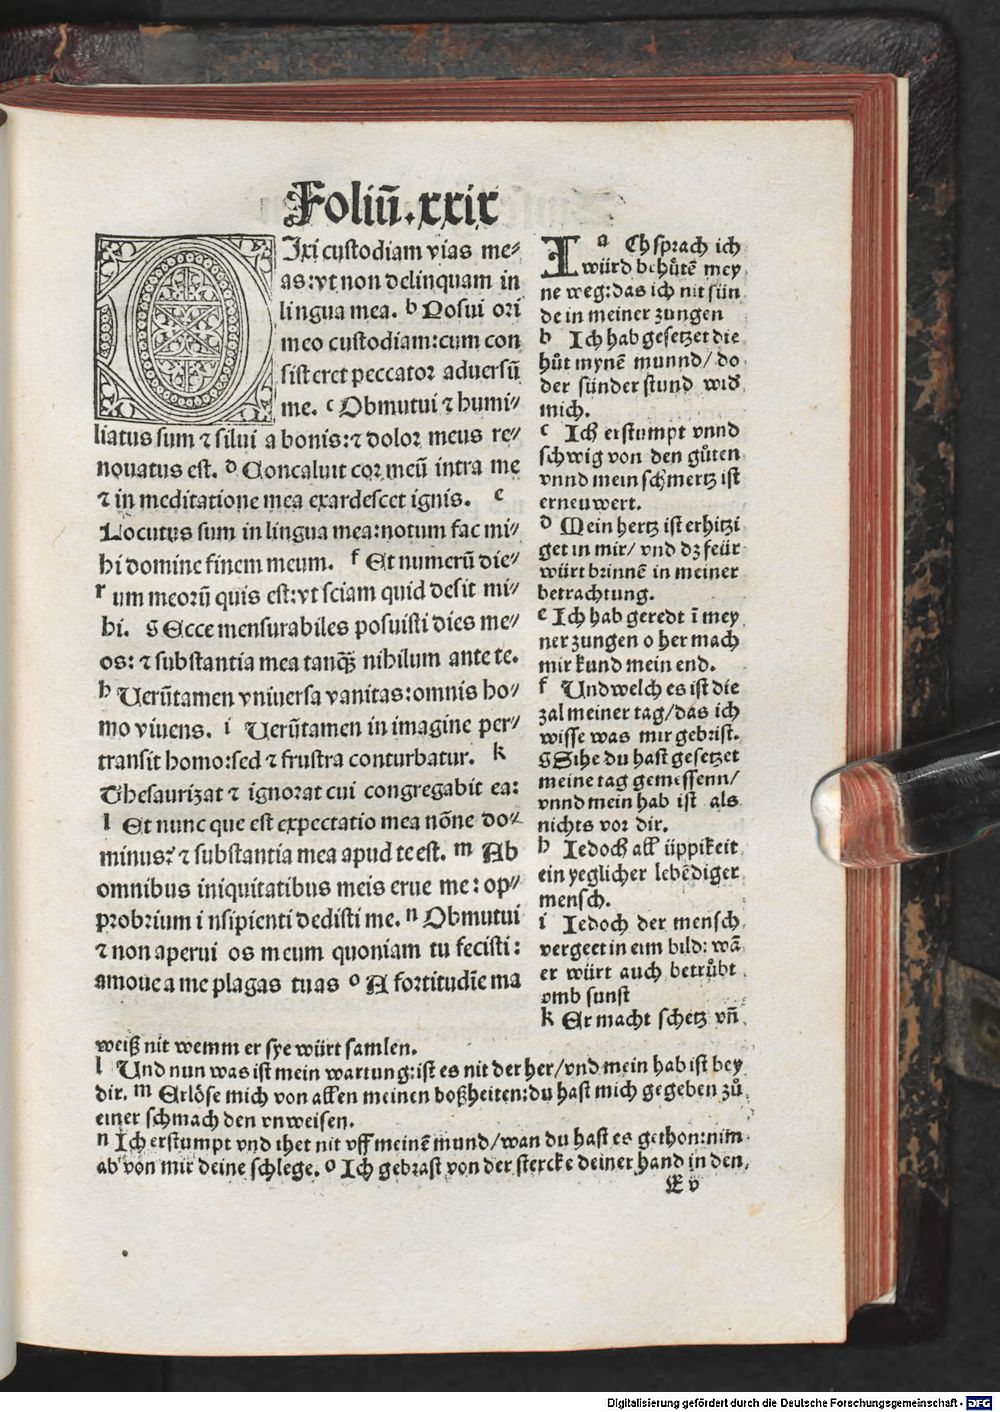 Foliū.xxix
DIxi custodiam vias me⸗
as:vt non delinquam in
lingua mea. b Posui ori
meo custodiam:cum con
sisteret peccator aduersū
me. c Obmutui ⁊ humi⸗
liatus sum ⁊ silui a bonis:⁊ dolor meus re⸗
nouatus est. d Concaluit cor meū intra me
⁊ in meditatione mea exardescet ignis. e
Locutus sum in lingua mea:notum fac mi⸗
hi domine finem meum. f Et numerū die⸗
r um meorū quis est:vt sciam quid desit mi⸗
hi. g Ecce mensurabiles posuisti dies me⸗
os: ⁊ substantia mea tanqꝫ nihilum ante te.
h Uerūtamen vniuersa vanitas:omnis ho⸗
mo viuens. i Uerūtamen in imagine per⸗
transit homo:sed ⁊ frustra conturbatur. k
Thesaurizat ⁊ ignorat cui congregabit ea:
l Et nunc que est expectatio mea nōne do⸗
minus? ⁊ substantia mea apud te est. m Ab
omnibus iniquitatibus meis erue me: op⸗
probrium i nsipienti dedisti me. n Obmutui
⁊ non aperui os meum quoniam tu fecisti:
amoue a me plagas tuas o A fortitudīe ma
a Ich sprach ich
würd behůtē mey
ne weg:das ich nit sün
de in meiner zungen
b Ich hab gesetzet die
hůt mynē munnd/ do
der sünder stund wid̄
mich.
c Ich erstumpt vnnd
schwig von den gůten
vnnd mein schmertz ist
erneuwert.
d Mein hertz ist erhitzi
get in mir/ vnd dz feür
würt brinnē in meiner
betrachtung.
e Ich hab geredt ī mey
ner zungen o her mach
mir kund mein end.
f Und welch es ist die
zal meiner tag/das ich
wisse was mir gebrist.
g Sihe du hast gesetzet
meine tag gemessenn/
vnnd mein hab ist als
nichts vor dir.
h Iedoch all üppikeit
ein yeglicher lebēdiger
mensch.
i Iedoch der mensch
vergeet in eim bild: wā
er würt auch betrůbt
vmb sunst
k Er macht schetz vn̄
weiß nit wemm er sye würt samlen.
l Und nun was ist mein wartung:ist es nit der her/vnd mein hab ist bey
dir. m Erlöse mich von allen meinen boßheiten:du hast mich gegeben zů
einer schmach den vnweisen.
n Ich erstumpt vnd thet nit vff meinē mund/wan du hast es gethon:nim
ab von mir deine schlege. o Ich gebrast von der stercke deiner hand in den
E v
Digitalisierung gefördert durch die Deutsche Forschungsgemeinschaft - DFG